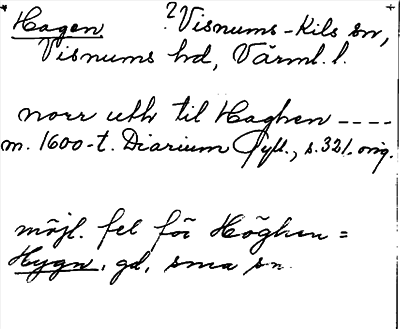 Hagen ?Visnums-Kils sn,
Visnums hd, Värml. l.
norr uth til Haghen ----
m. 1600-t. Diarium Gyll., s. 321. orig.
möjl. fel för Höghen =
Hygn, gd, sma sn.